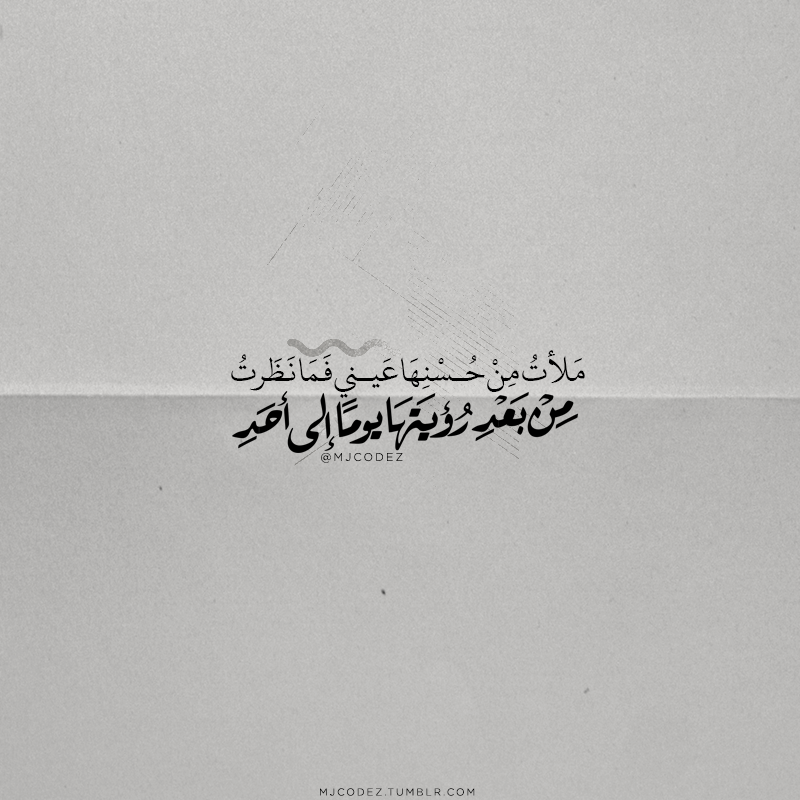 مَلأتُ مِنْ حُسْنِهَا عَيني فَمَا نَظَرتُ
مِنْ بَعَدِ رُؤيَتهَا يومًا إلى أحَدِ
@MJCODEZ
MJCODEZ.TUMBLR.COM